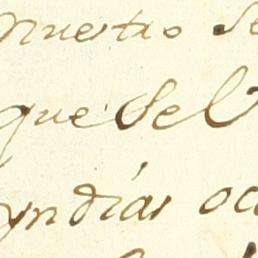 nuestro Se
que Sel
yndias oc